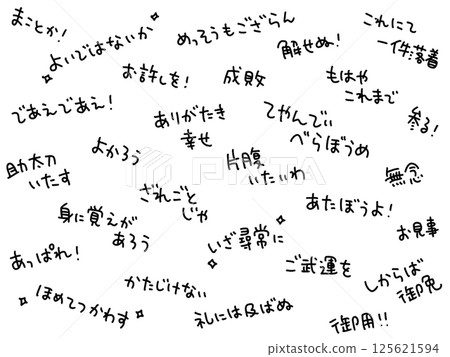 まことか!
よいではないか
めっそうもござらん
解せぬ!
これにて
一件落着
お許しを!
成敗
もはや
これまで
であえであえ!
ありがたき
幸せ
てやんでぃ
べらぼうめ
参る!
よかろう
助太刀
いたす
片腹
いたいわ
無念
ざれごと
じゃ
あたぼうよ!
身に覚えが
あろう
いざ尋常に
お見事
あっぱれ!
かたじけない
ご武運を
しからば
御免
ほめてつかわす
礼には及ばぬ
御用!!
PIXTA
pixta.jp - 125621594